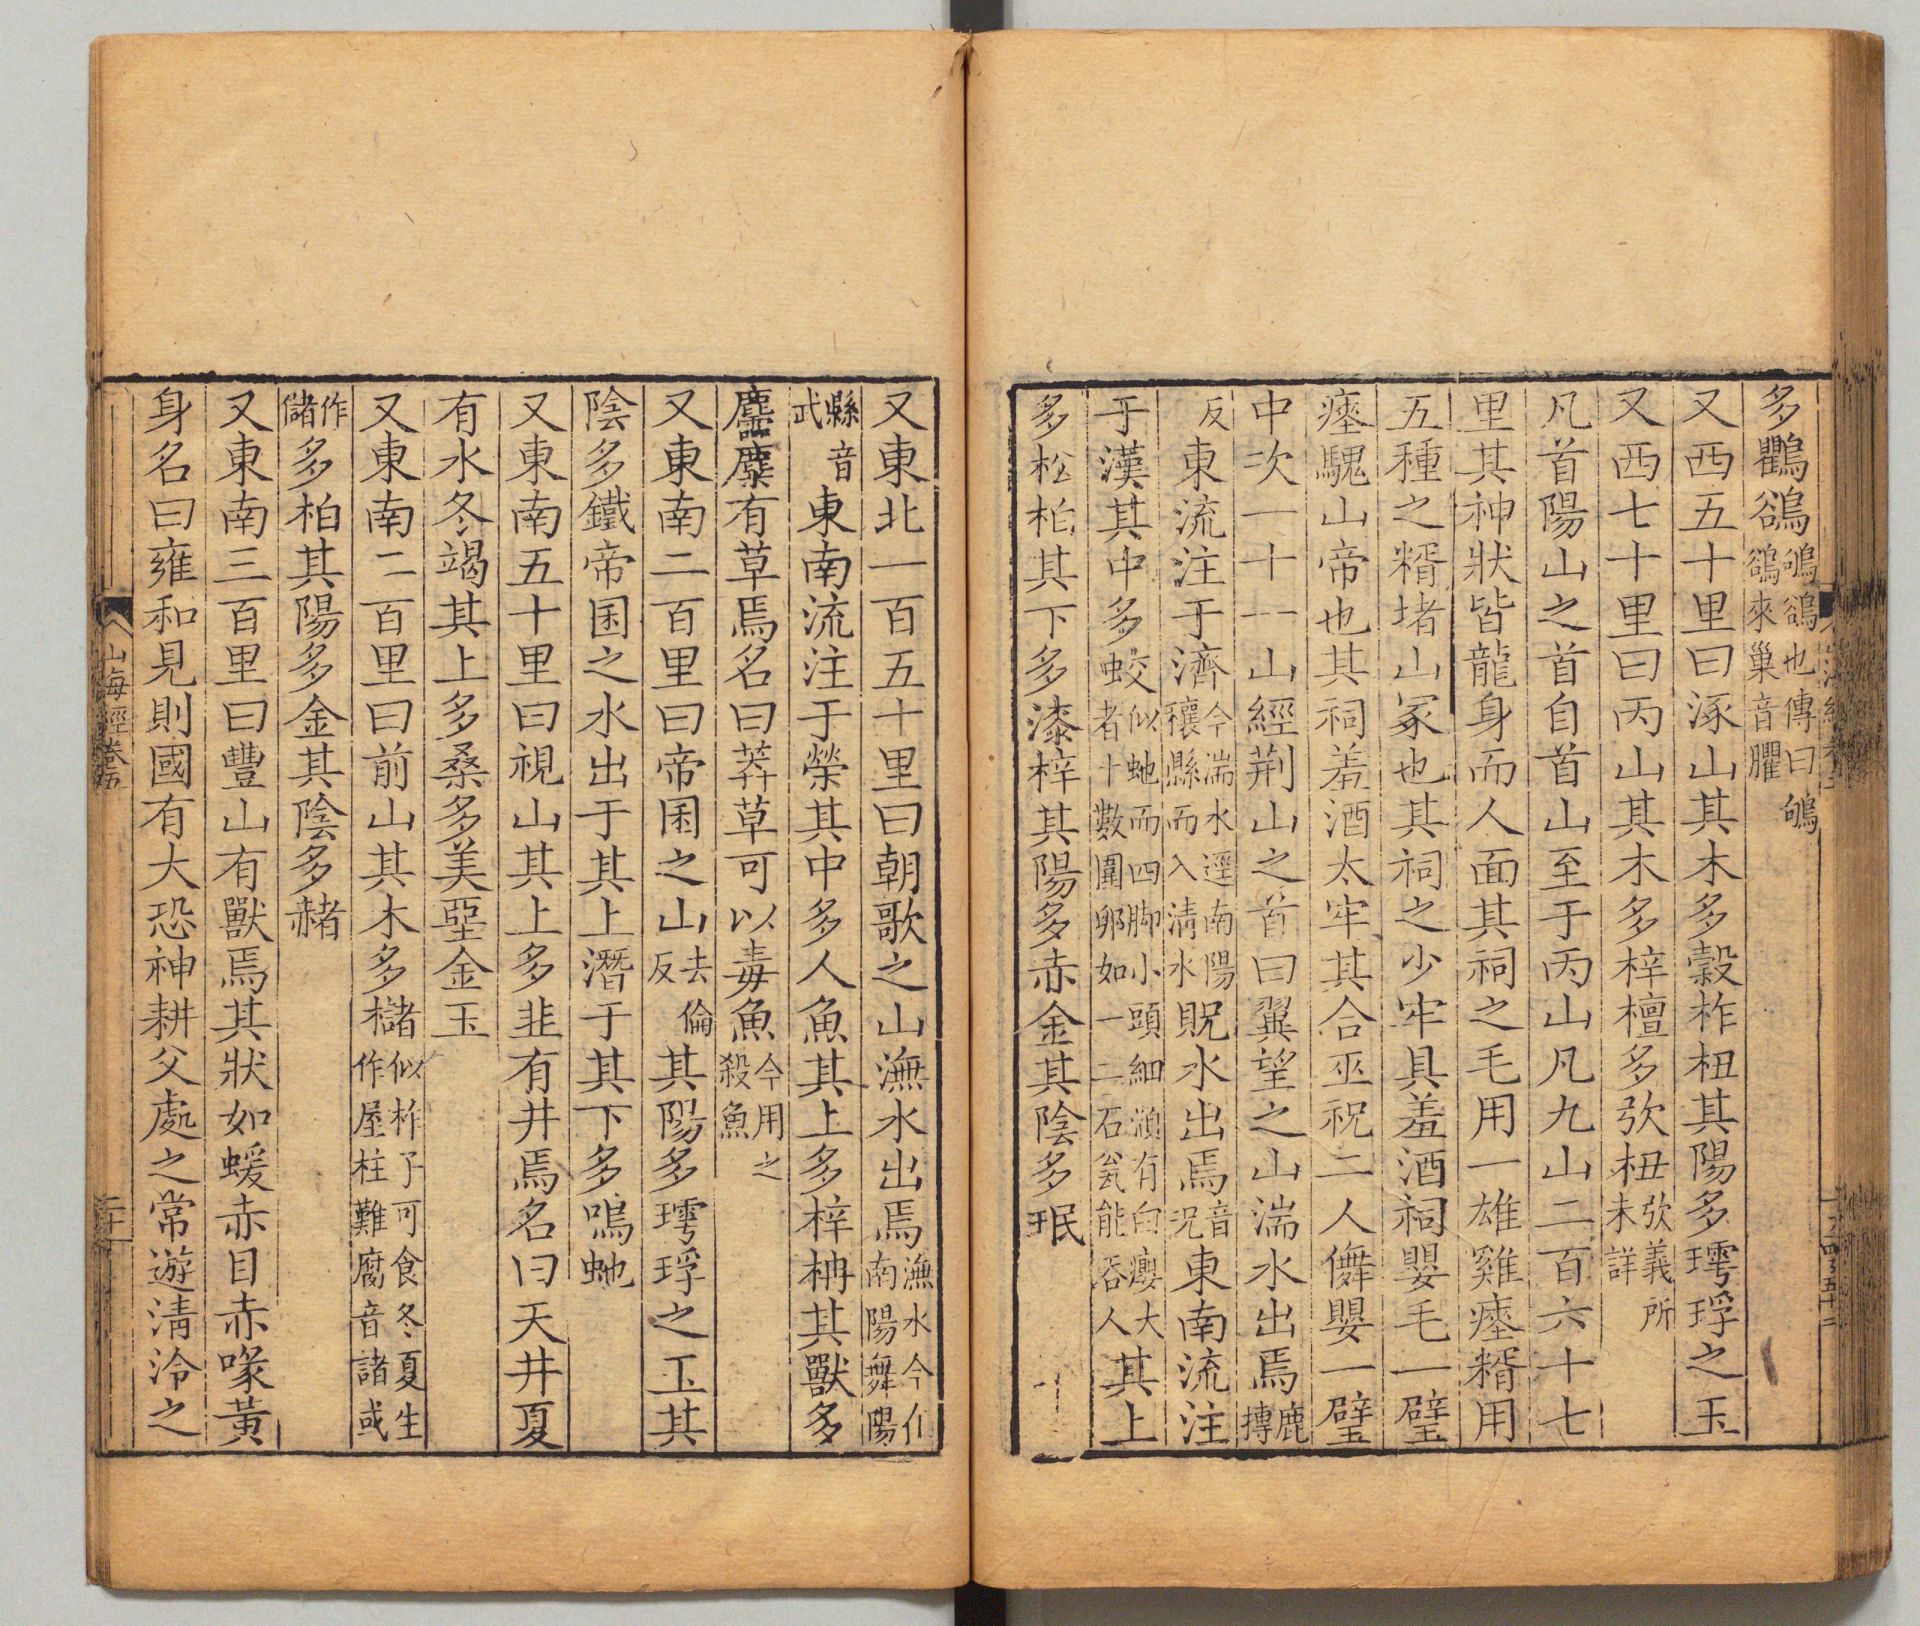 多鸜鵒鴝鵒也傳曰鴝鵒來巢音臞
又西五十里曰涿山其木多榖柞杻其陽多㻬琈之玉
又西七十里曰丙山其木多梓檀多弞杻弞義所未詳
凡首陽山之首自首山至于丙山凡九山二百六十七
里其神狀皆龍身而人面其祠之毛用一雄雞瘞糈用
五種之糈堵山冢也其祠之少牢具羞酒祠嬰毛一璧
瘞騩山帝也其祠羞酒太牢其合巫祝二人儛嬰一璧
中次一十一山經荆山之首曰翼望之山湍水出焉鹿摶
反東流注于濟今湍水逕南陽穰縣而入清水貺水出焉音況東南流注
于漢其中多蛟似虵而四脚小頭細頸有白癭大者十數圍卵如一二石瓮能吞人其上
多松柏其下多漆梓其陽多赤金其陰多珉
又東北一百五十里曰朝歌之山潕水出焉潕水今在南陽舞陽
縣音武東南流注于滎其中多人魚其上多梓枏其獸多
麢麋有草焉名曰莽草可以毒魚今用之殺魚
又東南二百里曰帝囷之山去倫反其陽多㻬琈之玉其
陰多鐵帝囷之水出于其上潛于其下多鳴虵
又東南五十里曰視山其上多韭有井焉名曰天井夏
有水冬竭其上多桑多美堊金玉
又東南二百里曰前山其木多櫧似柞子可食冬夏生作屋柱難腐音諸或
作儲多柏其陽多金其陰多赭
又東南三百里曰豐山有獸焉其狀如蝯赤目赤喙黃
身名曰雍和見則國有大恐神耕父處之常遊清泠之
山海經卷五